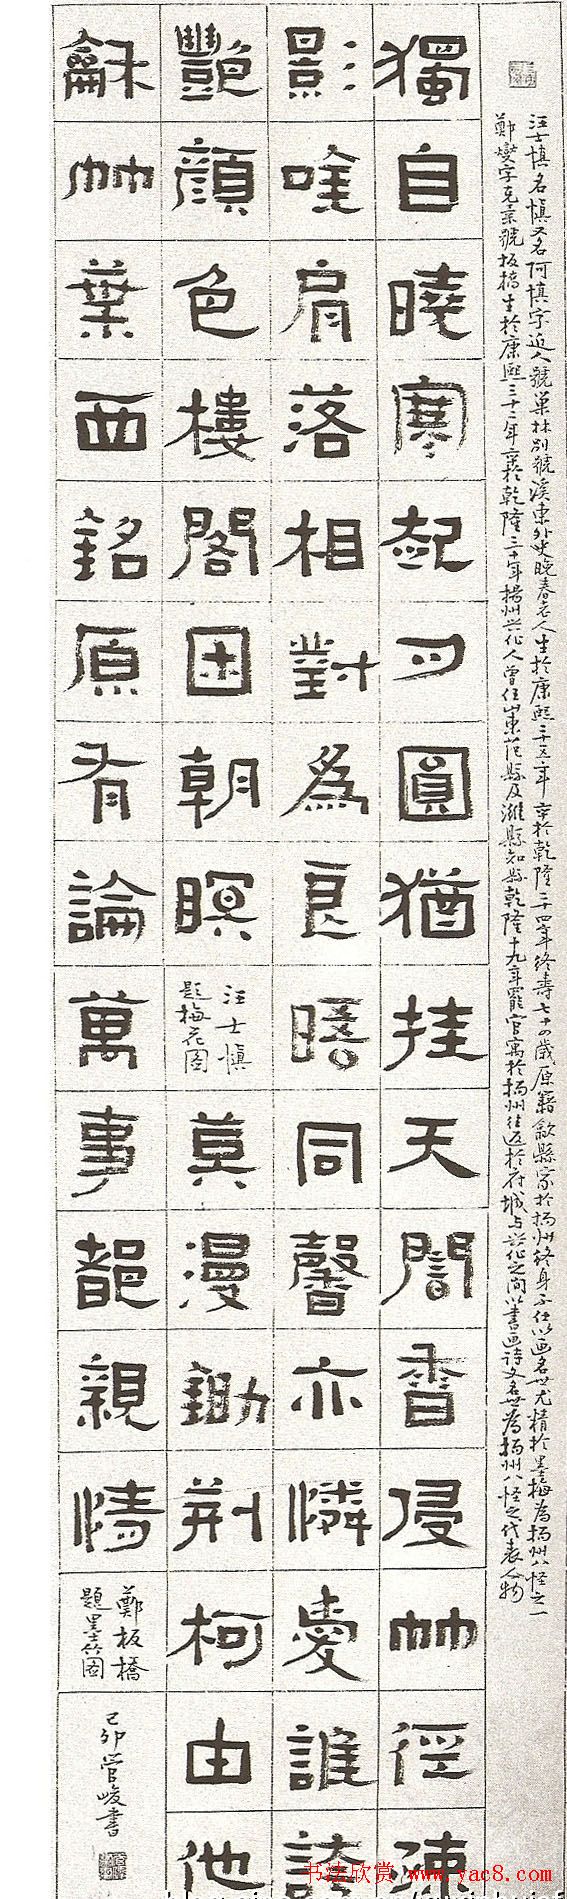 汪士慎名慎又名阿慎字近人號巢林別號溪東外史晚春老人生於康熙二十五年卒於乾隆二十四年終壽七十四歲原籍歙縣家於揚州終身不仕以画名世尤精於墨梅為揚州八怪之一
鄭燮字克柔號板橋生於康熙三十二年卒於乾隆三十年揚州興化人曾任山東范縣及濰縣知縣乾隆十九年罷官寓於揚州往返於府城与興化之間以書画詩文名世為揚州八怪之代表人物
獨自曉寒起月圓猶挂天闇香侵竹徑疎
影肩落相對為良晤同馨亦憐愛誰誇
艷顏色樓閣困朝暝
汪士慎
題梅花圖
莫漫鋤荊柯由他
龢竹葉西銘原有論萬事都親情
鄭板橋
題墨竹圖
己卯管峻書
书法欣赏 www.yac8.com